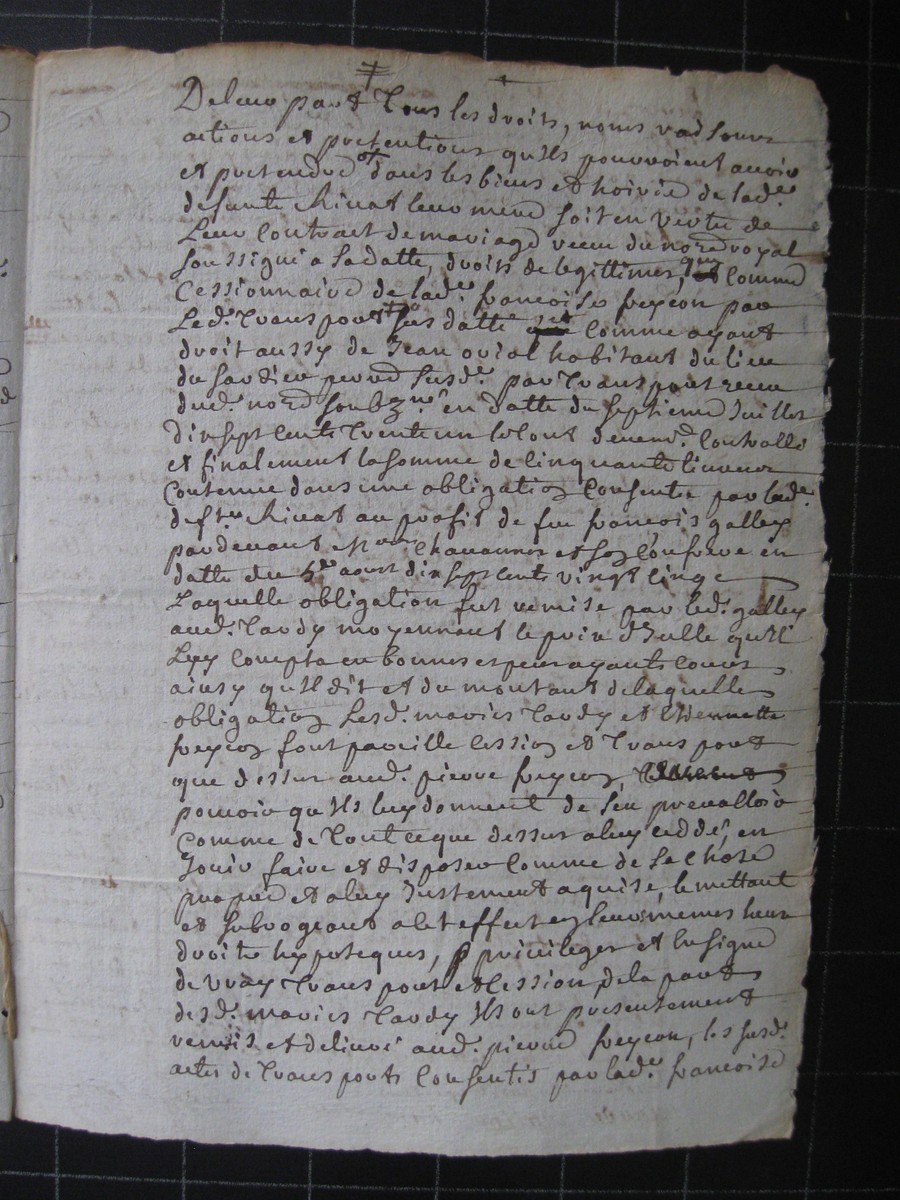 De leur part Tous les droits, noms raisons
actions et pretentions qu'ils pouvroient avoir
et pretendre dans les biens et hoirie de lad.e
defunte Rivat leur mere soit en vertu de
Leur Contract de mariage receu du no.re royal
soussigné a sa datte, droits de legittimes, que Comme
Cessionnaire de lad.e francoises freycon par
Led. Transport sus datté Comme ayant
droit aussy de Jean ovial habitant du lieu
du sardier susd. par Transport receu
dud. no.re soubz.né en datte du septieme Juillet
dixsept cents Trente un Controllé
et finalement la somme de Cinquante livres
Contenue dans une obligation Consentie par lad.e
deft.e Rivat au profit de feu francois galley
pardevant Chavannes et son Confrere en
datte du 5.e aoust dixsept cents vingt cinq
Laquelle obligation fut remise par led. galley
aud. Tardy moyennant le prix d'Icelle qu'il
Luy Compta en bonnes especes ayants cours
ainsy qu'il dit et du montant de laquelle
obligation Lesd. mariés Tardy et Etiennette
freycon font pareille Cession et Transport
que dessus aud. pierre freycon
pouvoir qu'ils luy donnent de s'en prevalloir
Comme de Tout ce que dessus a luy ceddé, en
Jouir faire et disposer Comme de sa Chose
propre et a luy Justement aquise, le mettant
et subrogeant a cet effet en leurs memes lieux
droits hypoteques, privileges et Insigne
de vray Transport et Cession de la part
desd. mariés Tardy Ils ont presentement
remis et delivré aud. pierre freycon, les susd.
actes de Transports Consentis par lad.e francoise